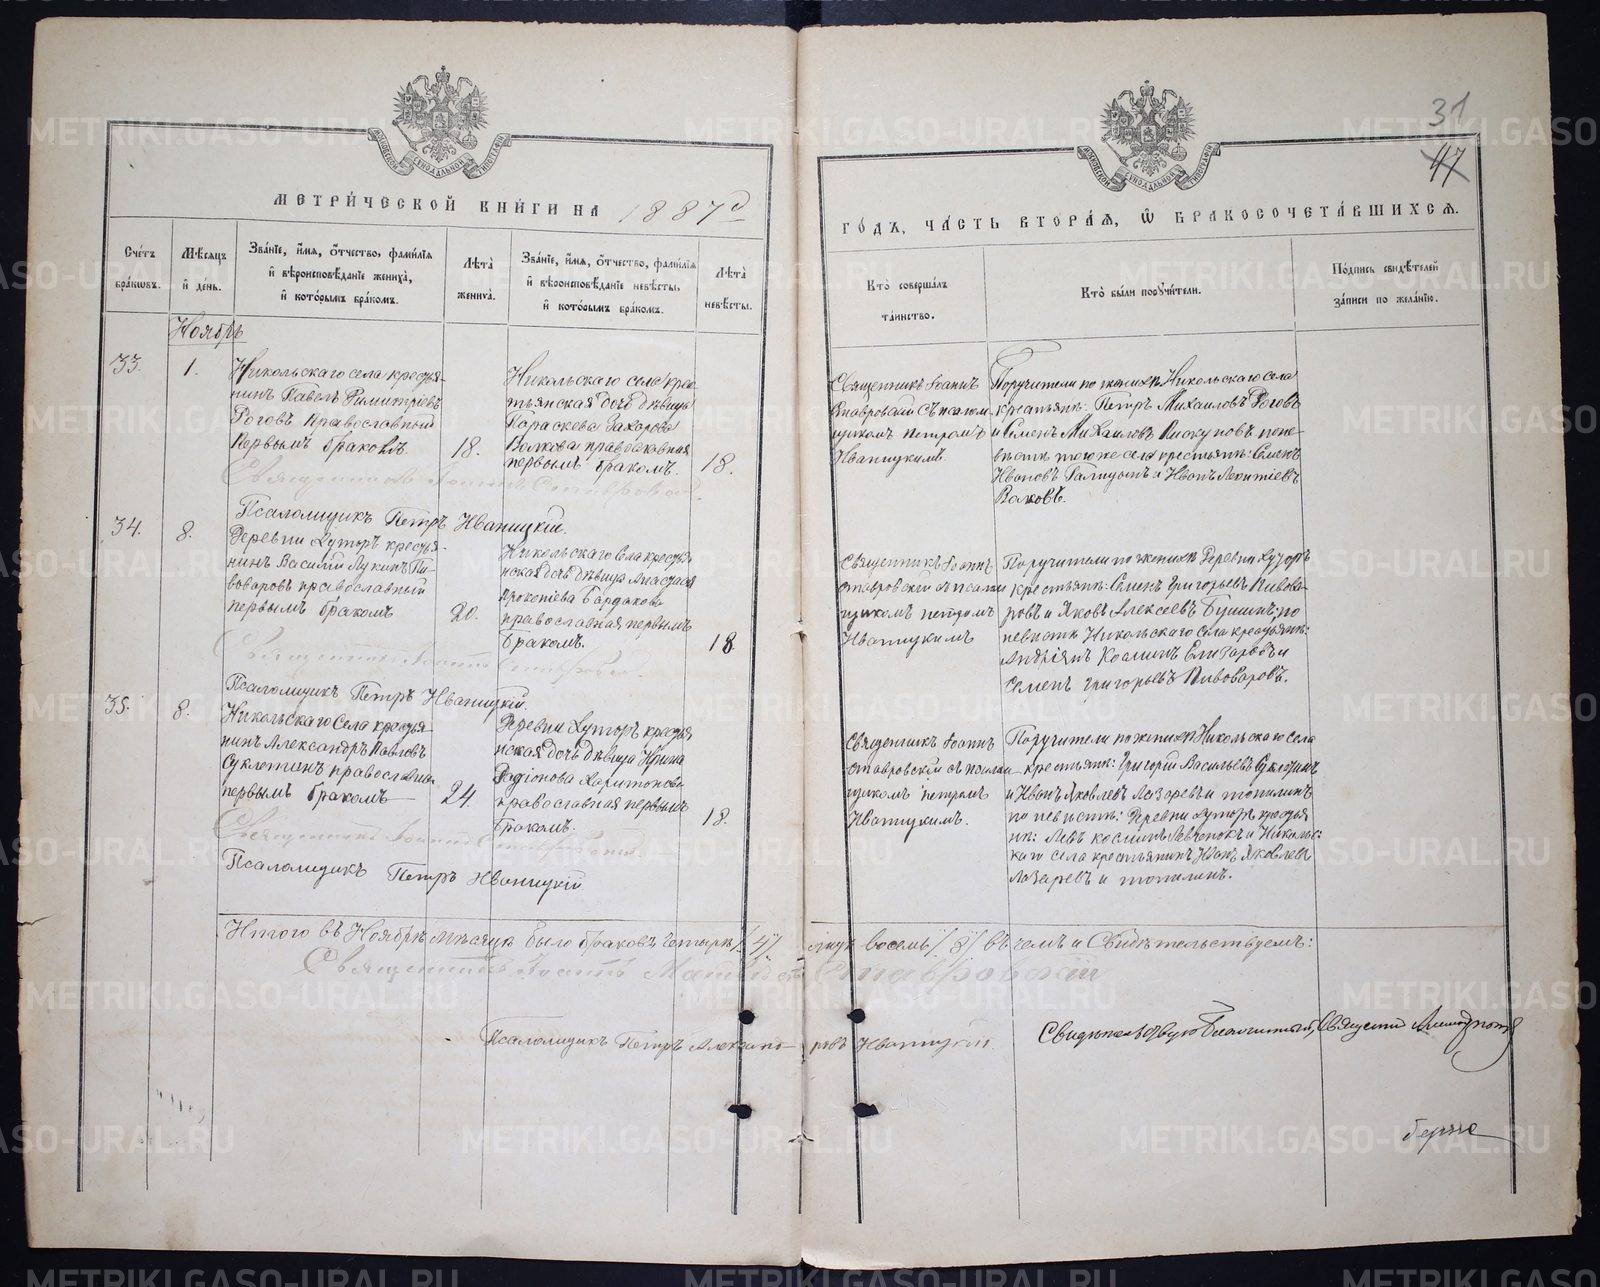 31
47
МОСКОВСКОЙ СѴНОДАЛЬНОЙ ТИПОГРАФІИ
МОСКОВСКОЙ СѴНОДАЛЬНОЙ ТИПОГРАФІИ
МЕТРИ́ЧЕСКОЙ КНИ́ГИ НА 1887 ᵈ
ГО́ДЪ, ЧА́СТЬ ВТОРА́Я, Ѽ БРАКОСОЧЕТА́ВШИХСЯ.
Сче́тъ бра́кωвъ.
Мѣ́сяцъ и҆ де́нь.
Зва́нїе, и҆́мя, ѻ҆́тчество, фами́лїя и҆ вѣроисповѣ́данїе жениха̀, и҆ кото́рымъ бра́комъ.
Лѣ́та жениха̀.
Зва́нїе, и҆́мя, ѻ҆́тчество, фами́лїя и҆ вѣроисповѣ́данїе невѣ́сты, и҆ кото́рымъ бра́комъ.
Лѣ́та невѣ́сты.
Кто̀ соверша́лъ та́инство.
Кто̀ бы́ли порꙋчи́тели.
По́дпись свидѣ́телей за́писи по жела́нїю.
Ноябрь
33.
1.
Никольскаго села крестья-
нинъ Павелъ Димитріевъ
Роговъ православный
первымъ бракомъ.
18.
Никольскаго села крес-
тьянская дочь дѣвица
Параскева Захарова
Волкова православная
первымъ бракомъ.
18.
Священникъ Іоаннъ
Ставровскій съ псалом-
щикомъ Петромъ
Иваницкимъ.
Поручители по женихѣ Никольскаго села
крестьяне: Петръ Михаиловъ Роговъ
и Семенъ Михаиловъ по не-
вѣстѣ того же села крестьяне: Семенъ
Ивановъ и Иванъ Леонтіевъ
Волковъ.
Священникъ Іоаннъ Ставровскій.
Псаломщикъ Петръ Иваницкій.
34.
8.
Деревни Хуторъ крестья-
нинъ Василій Лукинъ Пи-
воваровъ православный
первымъ бракомъ
20.
Никольскаго села крестья-
нская дочь дѣвица Анастасія
Прокопіева Бардакова
православная первымъ
бракомъ.
18
Священникъ Іоаннъ
Ставровскій съ псалом-
щикомъ Петромъ
Иваницкимъ
Поручители по женихѣ деревни Хуторъ
крестьяне: Семенъ Григорьевъ Пивова-
ровъ и Яковъ Алексеевъ Бушинъ; по
невѣстѣ Никольскаго села крестьяне:
Андріянъ Козминъ Елизаровъ и
Семенъ Григорьевъ Пивоваровъ.
Священникъ Іоаннъ Ставровскій.
Псаломщикъ Петръ Иваницкій.
35.
8.
Никольскаго села крестья-
нинъ Александръ Павловъ
православный
первымъ бракомъ
24.
Деревни Хуторъ крестья-
нская дочь дѣвица Ирина
Родіонова Харитонова
православная первымъ
бракомъ.
18.
Священникъ Іоаннъ
Ставровскій съ псалом-
щикомъ Петромъ
Иваницкимъ.
Поручители по женихѣ Никольскаго села
крестьяне: Григорій Васильевъ
и Иванъ Яковлевъ Лазаревъ и Топилинъ
по невѣстѣ: деревни Хуторъ крестья-
не: Левъ Козминъ и Николь-
скаго села крестьянинъ Иванъ Яковлевъ
Лазаревъ и Топилинъ.
Священникъ Іоаннъ Ставровскій.
Псаломщикъ Петръ Иваницкій
Итого въ Ноябрѣ мѣсяцѣ было браковъ четыре /4/ лицъ восемь /8/ въ чемъ и свидѣтельствуемъ:
Священникъ Іоаннъ Ставровскій
Псаломщикъ Петръ Александровъ Иваницкій.
Свидѣтельствую Благочинный, Священникъ
METRIKI.GASO-URAL.RU